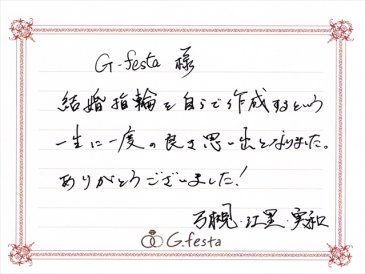 G-festa 様
結婚指輪を自らで作成するという
一生に一度の良き思い出となりました。
ありがとうございました!
G.festa